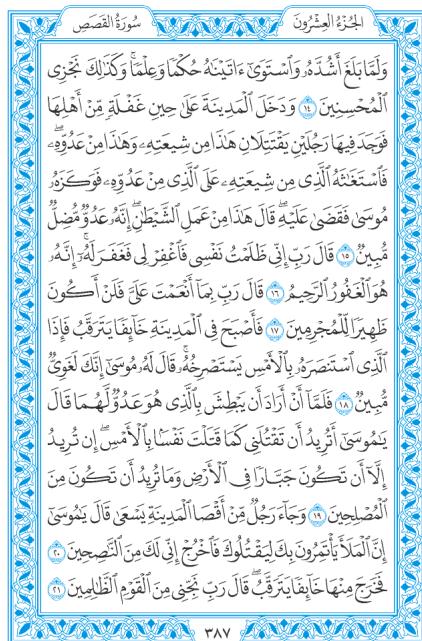 الجُزْءُ العِشْرُونَ
سُورَةُ القَصَصِ
وَلَمَّا بَلَغَ أَشُدَّهُۥ وَٱسْتَوَىٰٓ ءَاتَيْنَٰهُ حُكْمًا وَعِلْمًاۚ وَكَذَٰلِكَ نَجْزِى
ٱلْمُحْسِنِينَ ١٤ وَدَخَلَ ٱلْمَدِينَةَ عَلَىٰ حِينِ غَفْلَةٍ مِّنْ أَهْلِهَا
فَوَجَدَ فِيهَا رَجُلَيْنِ يَقْتَتِلَانِ هَٰذَا مِن شِيعَتِهِۦ وَهَٰذَا مِنْ عَدُوِّهِۦۖ
فَٱسْتَغَٰثَهُ ٱلَّذِى مِن شِيعَتِهِۦ عَلَى ٱلَّذِى مِنْ عَدُوِّهِۦ فَوَكَزَهُۥ
مُوسَىٰ فَقَضَىٰ عَلَيْهِۖ قَالَ هَٰذَا مِنْ عَمَلِ ٱلشَّيْطَٰنِۖ إِنَّهُۥ عَدُوٌّ مُّضِلٌّ
مُّبِينٌ ١٥ قَالَ رَبِّ إِنِّى ظَلَمْتُ نَفْسِى فَٱغْفِرْ لِى فَغَفَرَ لَهُۥٓۚ إِنَّهُۥ
هُوَ ٱلْغَفُورُ ٱلرَّحِيمُ ١٦ قَالَ رَبِّ بِمَآ أَنْعَمْتَ عَلَىَّ فَلَنْ أَكُونَ
ظَهِيرًا لِّلْمُجْرِمِينَ ١٧ فَأَصْبَحَ فِى ٱلْمَدِينَةِ خَآئِفًا يَتَرَقَّبُ فَإِذَا
ٱلَّذِى ٱسْتَنصَرَهُۥ بِٱلْأَمْسِ يَسْتَصْرِخُهُۥۚ قَالَ لَهُۥ مُوسَىٰٓ إِنَّكَ لَغَوِىٌّ
مُّبِينٌ ١٨ فَلَمَّآ أَنْ أَرَادَ أَن يَبْطِشَ بِٱلَّذِى هُوَ عَدُوٌّ لَّهُمَا قَالَ
يَٰمُوسَىٰٓ أَتُرِيدُ أَن تَقْتُلَنِى كَمَا قَتَلْتَ نَفْسًۢا بِٱلْأَمْسِۖ إِن تُرِيدُ
إِلَّآ أَن تَكُونَ جَبَّارًا فِى ٱلْأَرْضِ وَمَا تُرِيدُ أَن تَكُونَ مِنَ
ٱلْمُصْلِحِينَ ١٩ وَجَآءَ رَجُلٌ مِّنْ أَقْصَا ٱلْمَدِينَةِ يَسْعَىٰ قَالَ يَٰمُوسَىٰٓ
إِنَّ ٱلْمَلَأَ يَأْتَمِرُونَ بِكَ لِيَقْتُلُوكَ فَٱخْرُجْ إِنِّى لَكَ مِنَ ٱلنَّٰصِحِينَ ٢٠
فَخَرَجَ مِنْهَا خَآئِفًا يَتَرَقَّبُۖ قَالَ رَبِّ نَجِّنِى مِنَ ٱلْقَوْمِ ٱلظَّٰلِمِينَ ٢١
٣٨٧